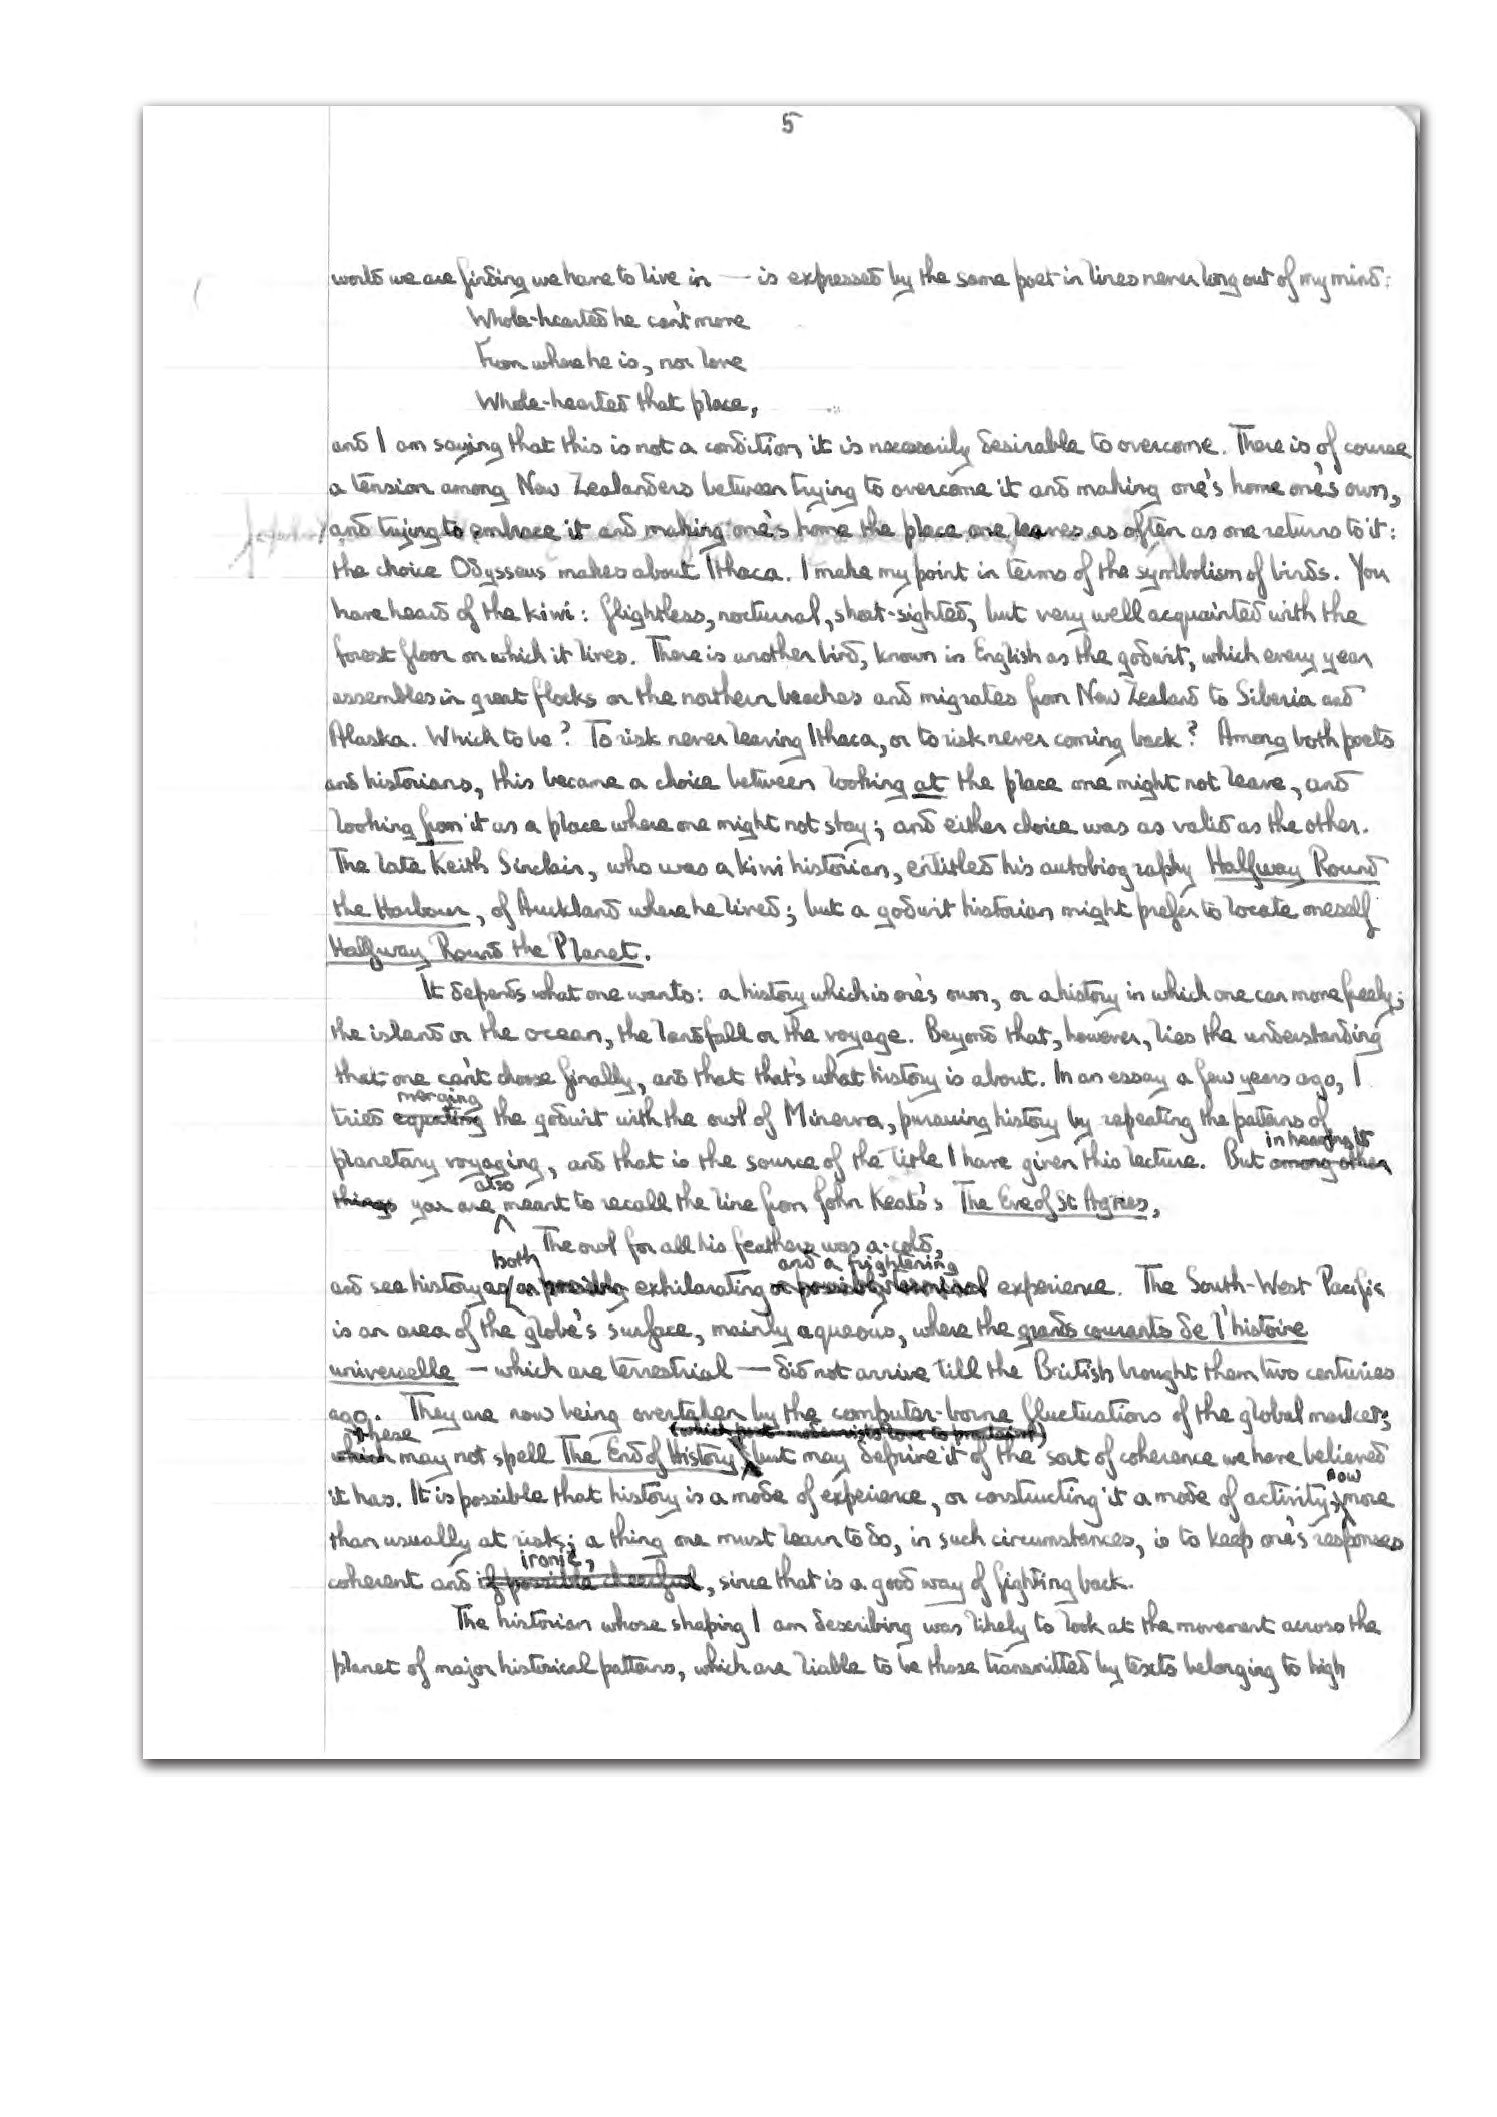 5
world we are finding we have to live in — is expressed by the same poet in lines never long out of my mind:
Whole-hearted he can't move
From where he is, nor love
Whole-hearted that place,
and I am saying that this is not a condition it is necessarily desirable to overcome. There is of course
a tension among New Zealanders between trying to overcome it and making one's home one's own,
and trying to embrace it and making one's home the place one leaves as often as one returns to it:
the choice Odysseus makes about Ithaca. I make my point in terms of the symbolism of birds. You
have heard of the kiwi: flightless, nocturnal, short-sighted, but very well acquainted with the
forest floor on which it lives. There is another bird, known in English as the godwit, which every year
assembles in great flocks on the northern beaches and migrates from New Zealand to Siberia and
Alaska. Which to be? To risk never leaving Ithaca, or to risk never coming back? Among both poets
and historians, this became a choice between looking at the place one might not leave, and
looking from it as a place where one might not stay; and either choice was as valid as the other.
The late Keith Sinclair, who was a kiwi historian, entitled his autobiography Halfway Round
the Harbour, of Auckland where he lived; but a godwit historian might prefer to locate oneself
Halfway Round the Planet.
It depends what one wants: a history which is one's own, or a history in which one can move freely;
the island or the ocean, the landfall or the voyage. Beyond that, however, lies the understanding
that one can't choose finally, and that that's what history is about. In an essay a few years ago, I
merging
tried equating the godwit with the owl of Minerva, pursuing history by repeating the patterns of
in hearing it
planetary voyaging, and that is the source of the title I have given this lecture. But among other
also
things you are meant to recall the line from John Keats's The Eve of St Agnes,
The owl for all his feathers was a-cold,
both and a frightening
and see history as an possibly exhilarating or possibly terminal experience. The South-West Pacific
is an area of the globe's surface, mainly aqueous, where the grands courants de l'histoire
universelle — which are terrestrial — did not arrive till the British brought them two centuries
ago. They are now being overtaken by the computer-borne fluctuations of the global market;
these (which post-modernists love to proclaim)
which may not spell The End of History but may deprive it of the sort of coherence we have believed
now
it has. It is possible that history is a mode of experience, or constructing it a mode of activity, more
than usually at risk; a thing one must learn to do, in such circumstances, is to keep one's responses
ironic,
coherent and if possible cheerful, since that is a good way of fighting back.
The historian whose shaping I am describing was likely to look at the movement across the
planet of major historical patterns, which are liable to be those transmitted by texts belonging to high